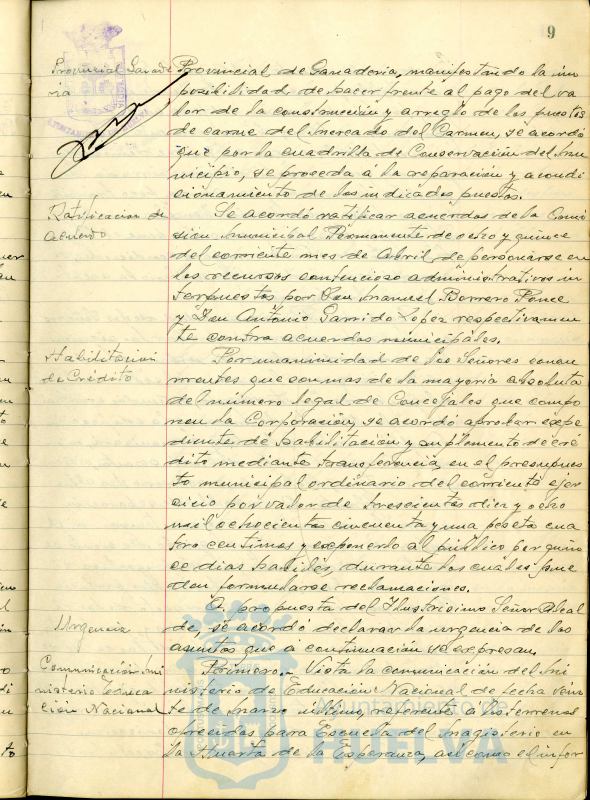 9
Provincial Ganade
ria
Provincial de Ganaderia, manifestando la im
posibilidad de hacer frente al pago del va
lor de la construcción y arreglo de los puestos
de carne del Mercado del Carmen, se acordó
que por la cuadrilla de Conservación del Mu
nicipio, se proceda á la reparación y acondi
cionamiento de los indicados puestos.
Ratificacion de
acuerdo
Se acordó ratificar acuerdos de la Comi
sion Municipal Permanente de ocho y quince
del corriente mes de Abril, de personarse en
los recursos contencioso administrativos in
terpuestos por Don Manuel Borrero Ponce
y Don António Garrido Lopez respectivamen
te contra acuerdos municipales.
Habilitacion
de Crédito
Por unanimidad de los Señores concu
rrentes que son mas de la mayoria absoluta
del número legal de Concejales que compo
nen la Corporación, se acordó aprobar expe
diente de habilitación y suplemento de cré
dito mediante transferencia, en el presupues
to municipal ordinario del corriente ejer
cicio por valor de trescientas diez y ocho
mil ochocientas cincuenta y una peseta cua
tro centimos y exponerlo al público por quin
ce dias habiles, durante los cuales pue
den formularse reclamaciones.
Urgencia
A propuesta del Ilustrisimo Señor Alcal
de, se acordó declarar la urgencia de los
asuntos que á continuación se expresan.
Comunicación Mi
nisterio Educa
ción Nacional
Primero.- Vista la comunicación del Mi
nisterio de Educación Nacional de fecha vein
te de Marzo último, referente a los terrenos
ofrecidos para Escuela del Magisterio en
la Huerta de la Esperanza, asi como el infor
Ayuntamiento de
HUELVA